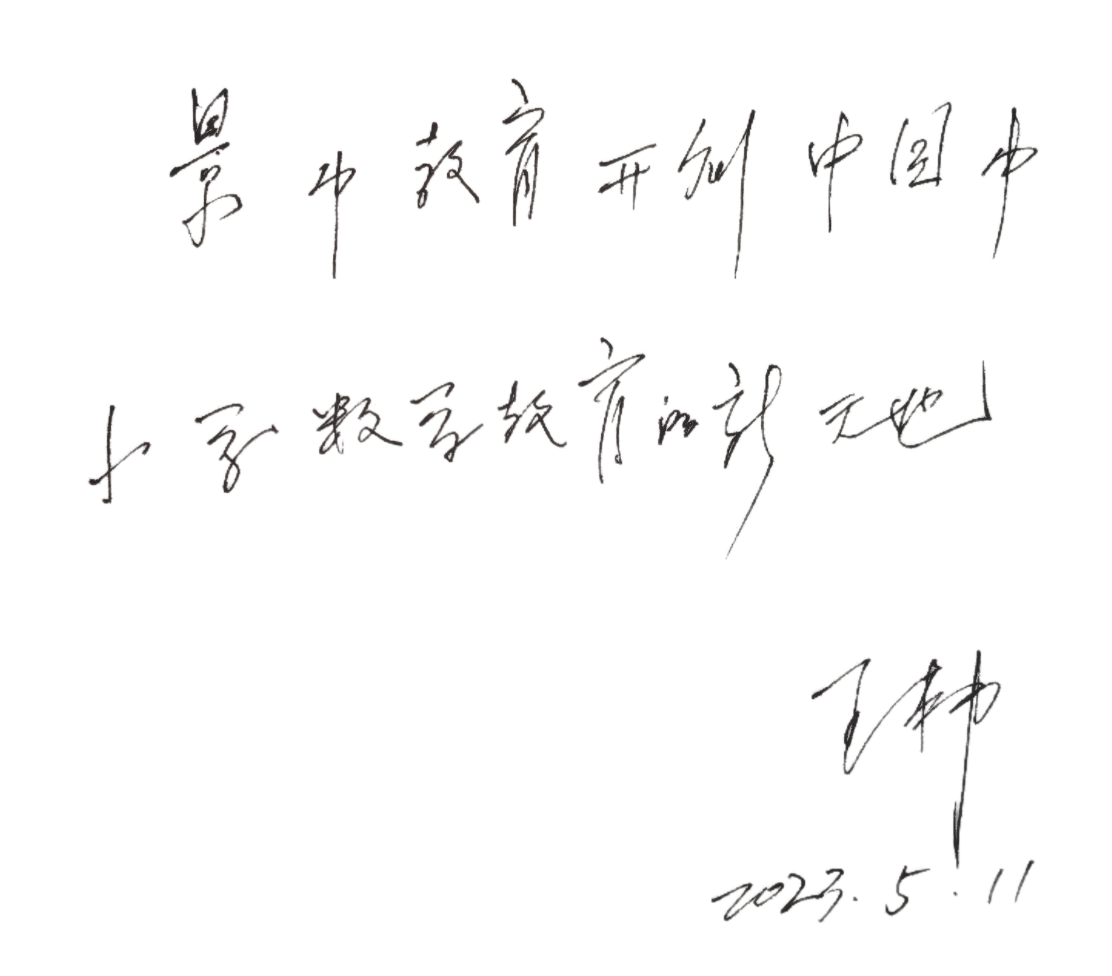 景中教育开创中国中
小学数学教育的新天地
2023.5.11